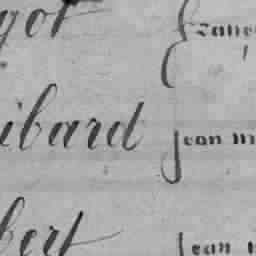 got franc
ibard jean m
bert jean